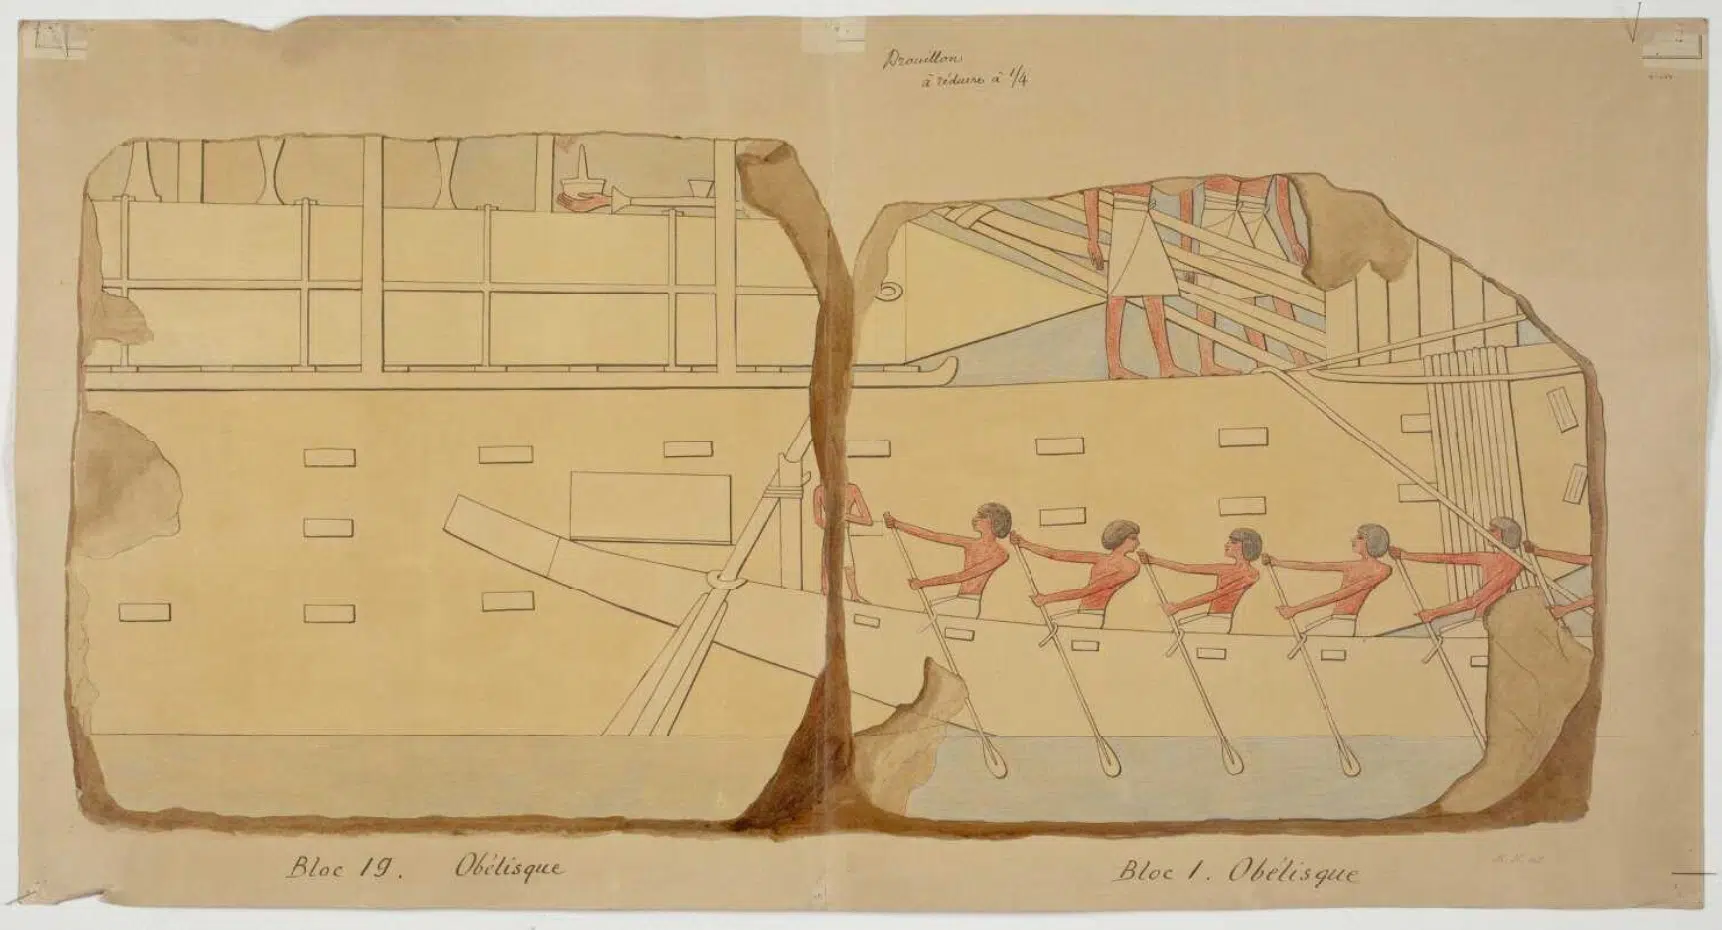 Brouillon
à réduire à 1/4
Bloc 19. Obélisque
Bloc 1. Obélisque